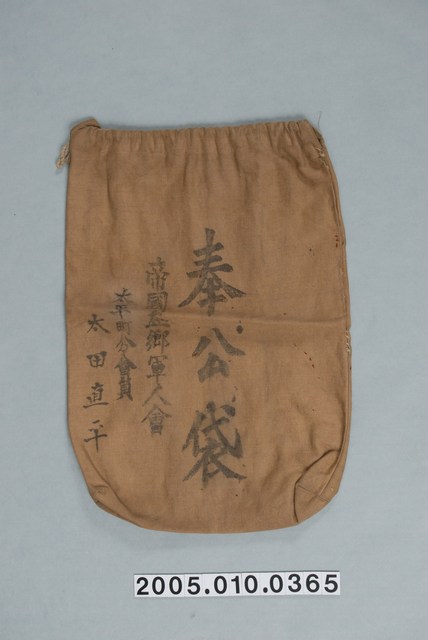 奉公袋
帝國在鄉軍人會
太平町分會員
太田直平
2005.010.0365